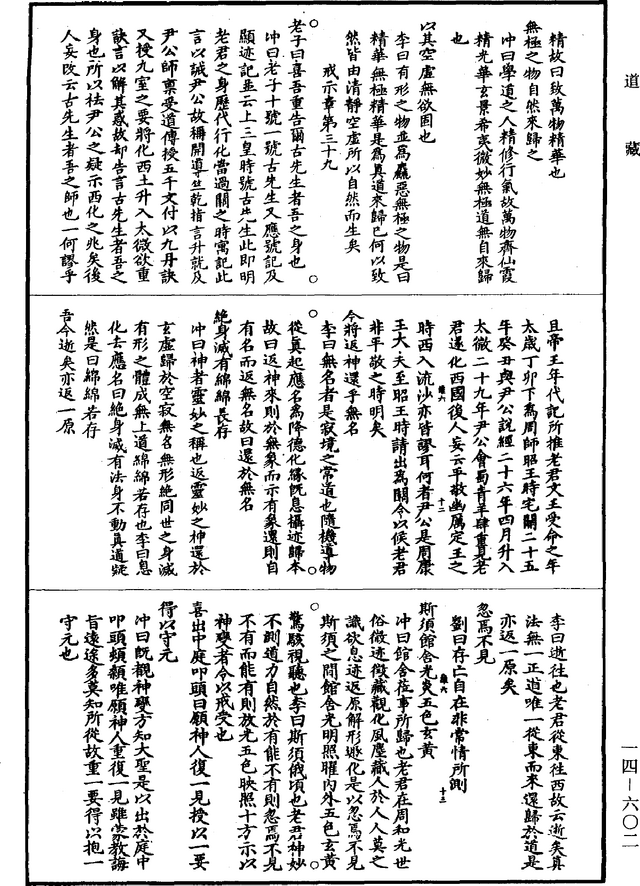 道藏
精故曰致萬物精華也
無極之物自然來歸之
冲曰學道之人精修行氣故萬物齊仙霞
精光華玄景希夷微妙無極道無自來歸
也
以其空虛無欲因也
李曰有形之物並爲麤惡無極之物是曰
精華無極精華是爲真道來歸已何以致
然皆由清靜空虛所以自然而生矣
戒示章第三十九
老子曰喜吾重告爾古先生者吾之身也
冲曰老子十號一號古先生又應號記及
顯迹記並云上三皇時號古先生此即明
老君之身歷代行化當過關之時寓記此
言以誠尹公故稱開道竺乾指言升就及
尹公師稟受道傳授五千文付以九丹訣
又授九室之要將化西土升入太微欲重
訣言以解其惑故却告言古先生者吾之
身也所以祛尹公之疑示西化之兆矣後
人妄改云古先生者吾之師也一何謬乎
且帝王年代記所推老君文王受命之年
太歲丁卯下爲周師昭王時宅關二十五
年癸丑與尹公說經二十六年四月升入
太微二十九年尹公會蜀青羊肆重見老
君遂化西國後人妄云平敬幽厲定王之
時西入流沙亦皆謬耳何者尹公是周康
王大夫至昭王時請出爲關令以候老君
非平敬之時明矣
今將返神還乎無名
李曰無名者是寂境之常道也隨機導物
從真起應名爲降德化緣既息攝迹歸本
故曰返神來則於無象而示有象還則自
有名而返無名故曰還於無名
絶身滅有綿綿長存
冲曰神者靈妙之稱也返靈妙之神還於
玄虛歸於空寂無名無形絶同世之身滅
有形之體成無上道綿綿若存也李曰息
化去應名曰絶身滅有法身不動真道凝
然是曰綿綿若存
吾今逝矣亦返一原
李曰逝往也老君從東往西故云逝矣真
法無二正道唯一從東而來還歸於道是
亦返一原矣
忽焉不見
劉曰存亡自在非常情所測
斯須館舍光炎五色玄黄
冲曰館舍莅事所歸也老君在周和光世
俗微迹徵藏觀化風塵藏人於人人莫之
識欲息迹返原解形遯化是以忽焉不見
斯須之間館舍光明照曜内外五色玄黄
驚駭視聽也李曰斯須俄頃也老君神妙
不測道力自然於有能不有則忽焉不見
不有而能有則放光五色映照十方示以
神變者令以戒受也
喜出中庭叩頭曰願神人復一見授以一要
得以守元
冲曰既觀神變方知大聖是以出於庭中
叩頭頻顙唯願神人重復一見雖蒙教誨
旨遠途多莫知所從故重一要得以抱一
守元也
一四—六〇二